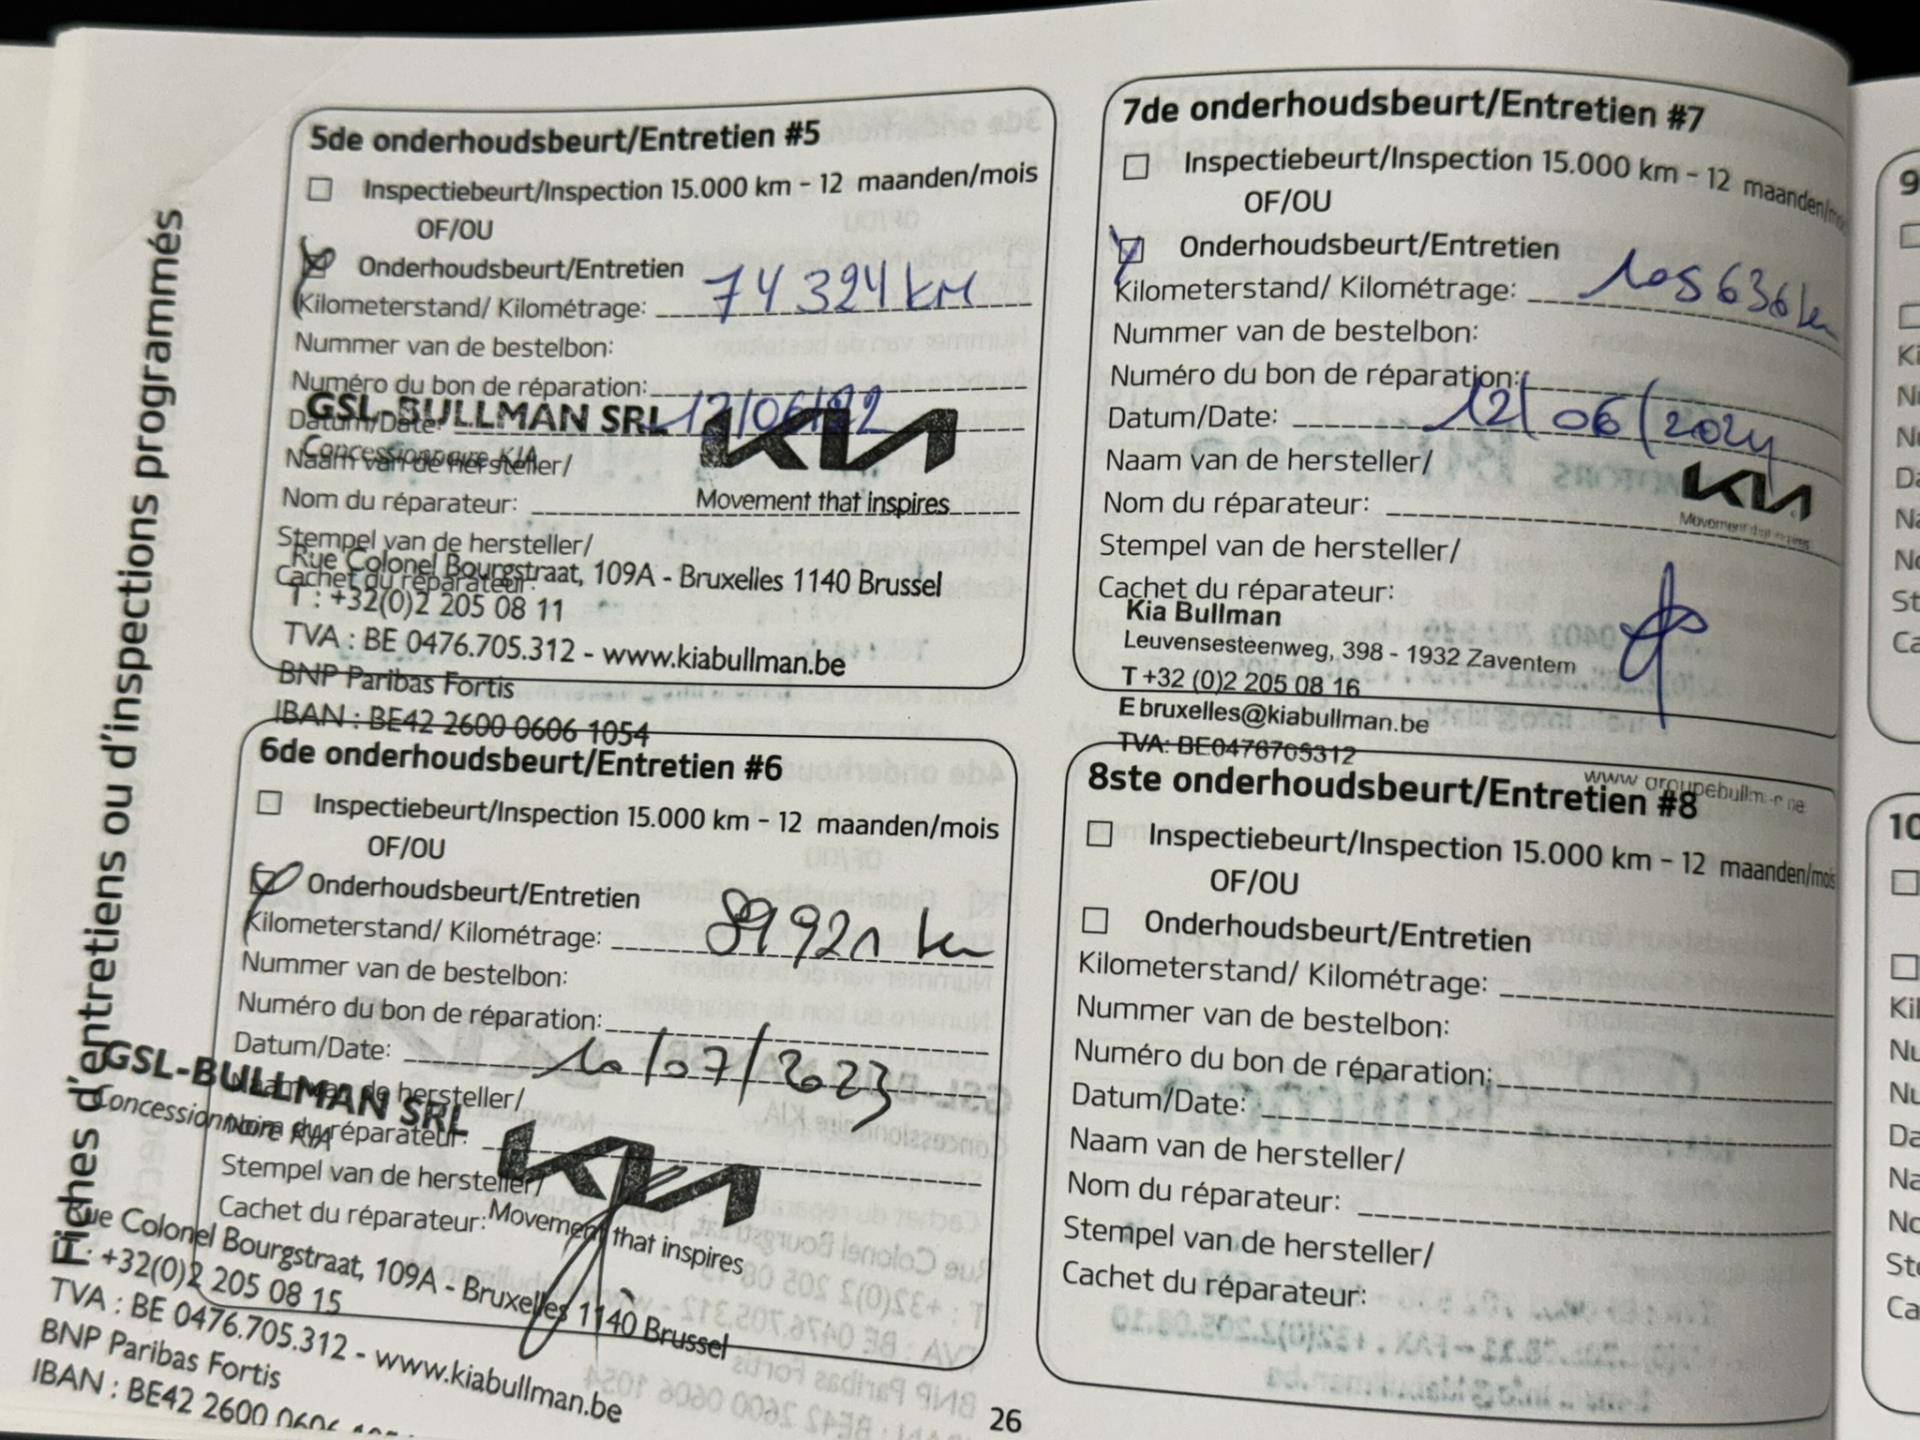 Fiches d'entretiens ou d'inspections programmés
5de onderhoudsbeurt/Entretien #5
Inspectiebeurt/Inspection 15.000 km - 12 maanden/mois
OF/OU
Onderhoudsbeurt/Entretien
Kilometerstand/ Kilométrage: 74324 km
Nummer van de bestelbon:
Numéro du bon de réparation:
GSL-BULLMAN SRL
Datum/Date: 12/06/22
Concessionnaire KIA
KIA
Naam van de hersteller/
Nom du réparateur:
Movement that inspires
Stempel van de hersteller/
Rue Colonel Bourgstraat, 109A - Bruxelles 1140 Brussel
Cachet du réparateur:
T : +32(0)2 205 08 11
TVA : BE 0476.705.312 - www.kiabullman.be
BNP Paribas Fortis
IBAN : BE42 2600 0606 1054
6de onderhoudsbeurt/Entretien #6
Inspectiebeurt/Inspection 15.000 km - 12 maanden/mois
OF/OU
Onderhoudsbeurt/Entretien
Kilometerstand/ Kilométrage: 89921 km
Nummer van de bestelbon:
Numéro du bon de réparation:
Datum/Date: 10/07/2023
GSL-BULLMAN SRL
Naam van de hersteller/
Concessionnaire KIA
Nom du réparateur:
KIA
Stempel van de hersteller/
Cachet du réparateur:
Movement that inspires
Rue Colonel Bourgstraat, 109A - Bruxelles 1140 Brussel
T : +32(0)2 205 08 15
TVA : BE 0476.705.312 - www.kiabullman.be
BNP Paribas Fortis
IBAN : BE42 2600
26
7de onderhoudsbeurt/Entretien #7
Inspectiebeurt/Inspection 15.000 km - 12 maanden/mois
OF/OU
Onderhoudsbeurt/Entretien
Kilometerstand/ Kilométrage: 105636 km
Nummer van de bestelbon:
Numéro du bon de réparation:
Datum/Date: 12/06/2024
Naam van de hersteller/
KIA
Nom du réparateur:
Movement that inspires
Stempel van de hersteller/
Cachet du réparateur:
Kia Bullman
Leuvensesteenweg, 398 - 1932 Zaventem
T +32 (0)2 205 08 16
E bruxelles@kiabullman.be
TVA: BE0476705312
8ste onderhoudsbeurt/Entretien #8
Inspectiebeurt/Inspection 15.000 km - 12 maanden/mois
OF/OU
Onderhoudsbeurt/Entretien
Kilometerstand/ Kilométrage:
Nummer van de bestelbon:
Numéro du bon de réparation:
Datum/Date:
Naam van de hersteller/
Nom du réparateur:
Stempel van de hersteller/
Cachet du réparateur: